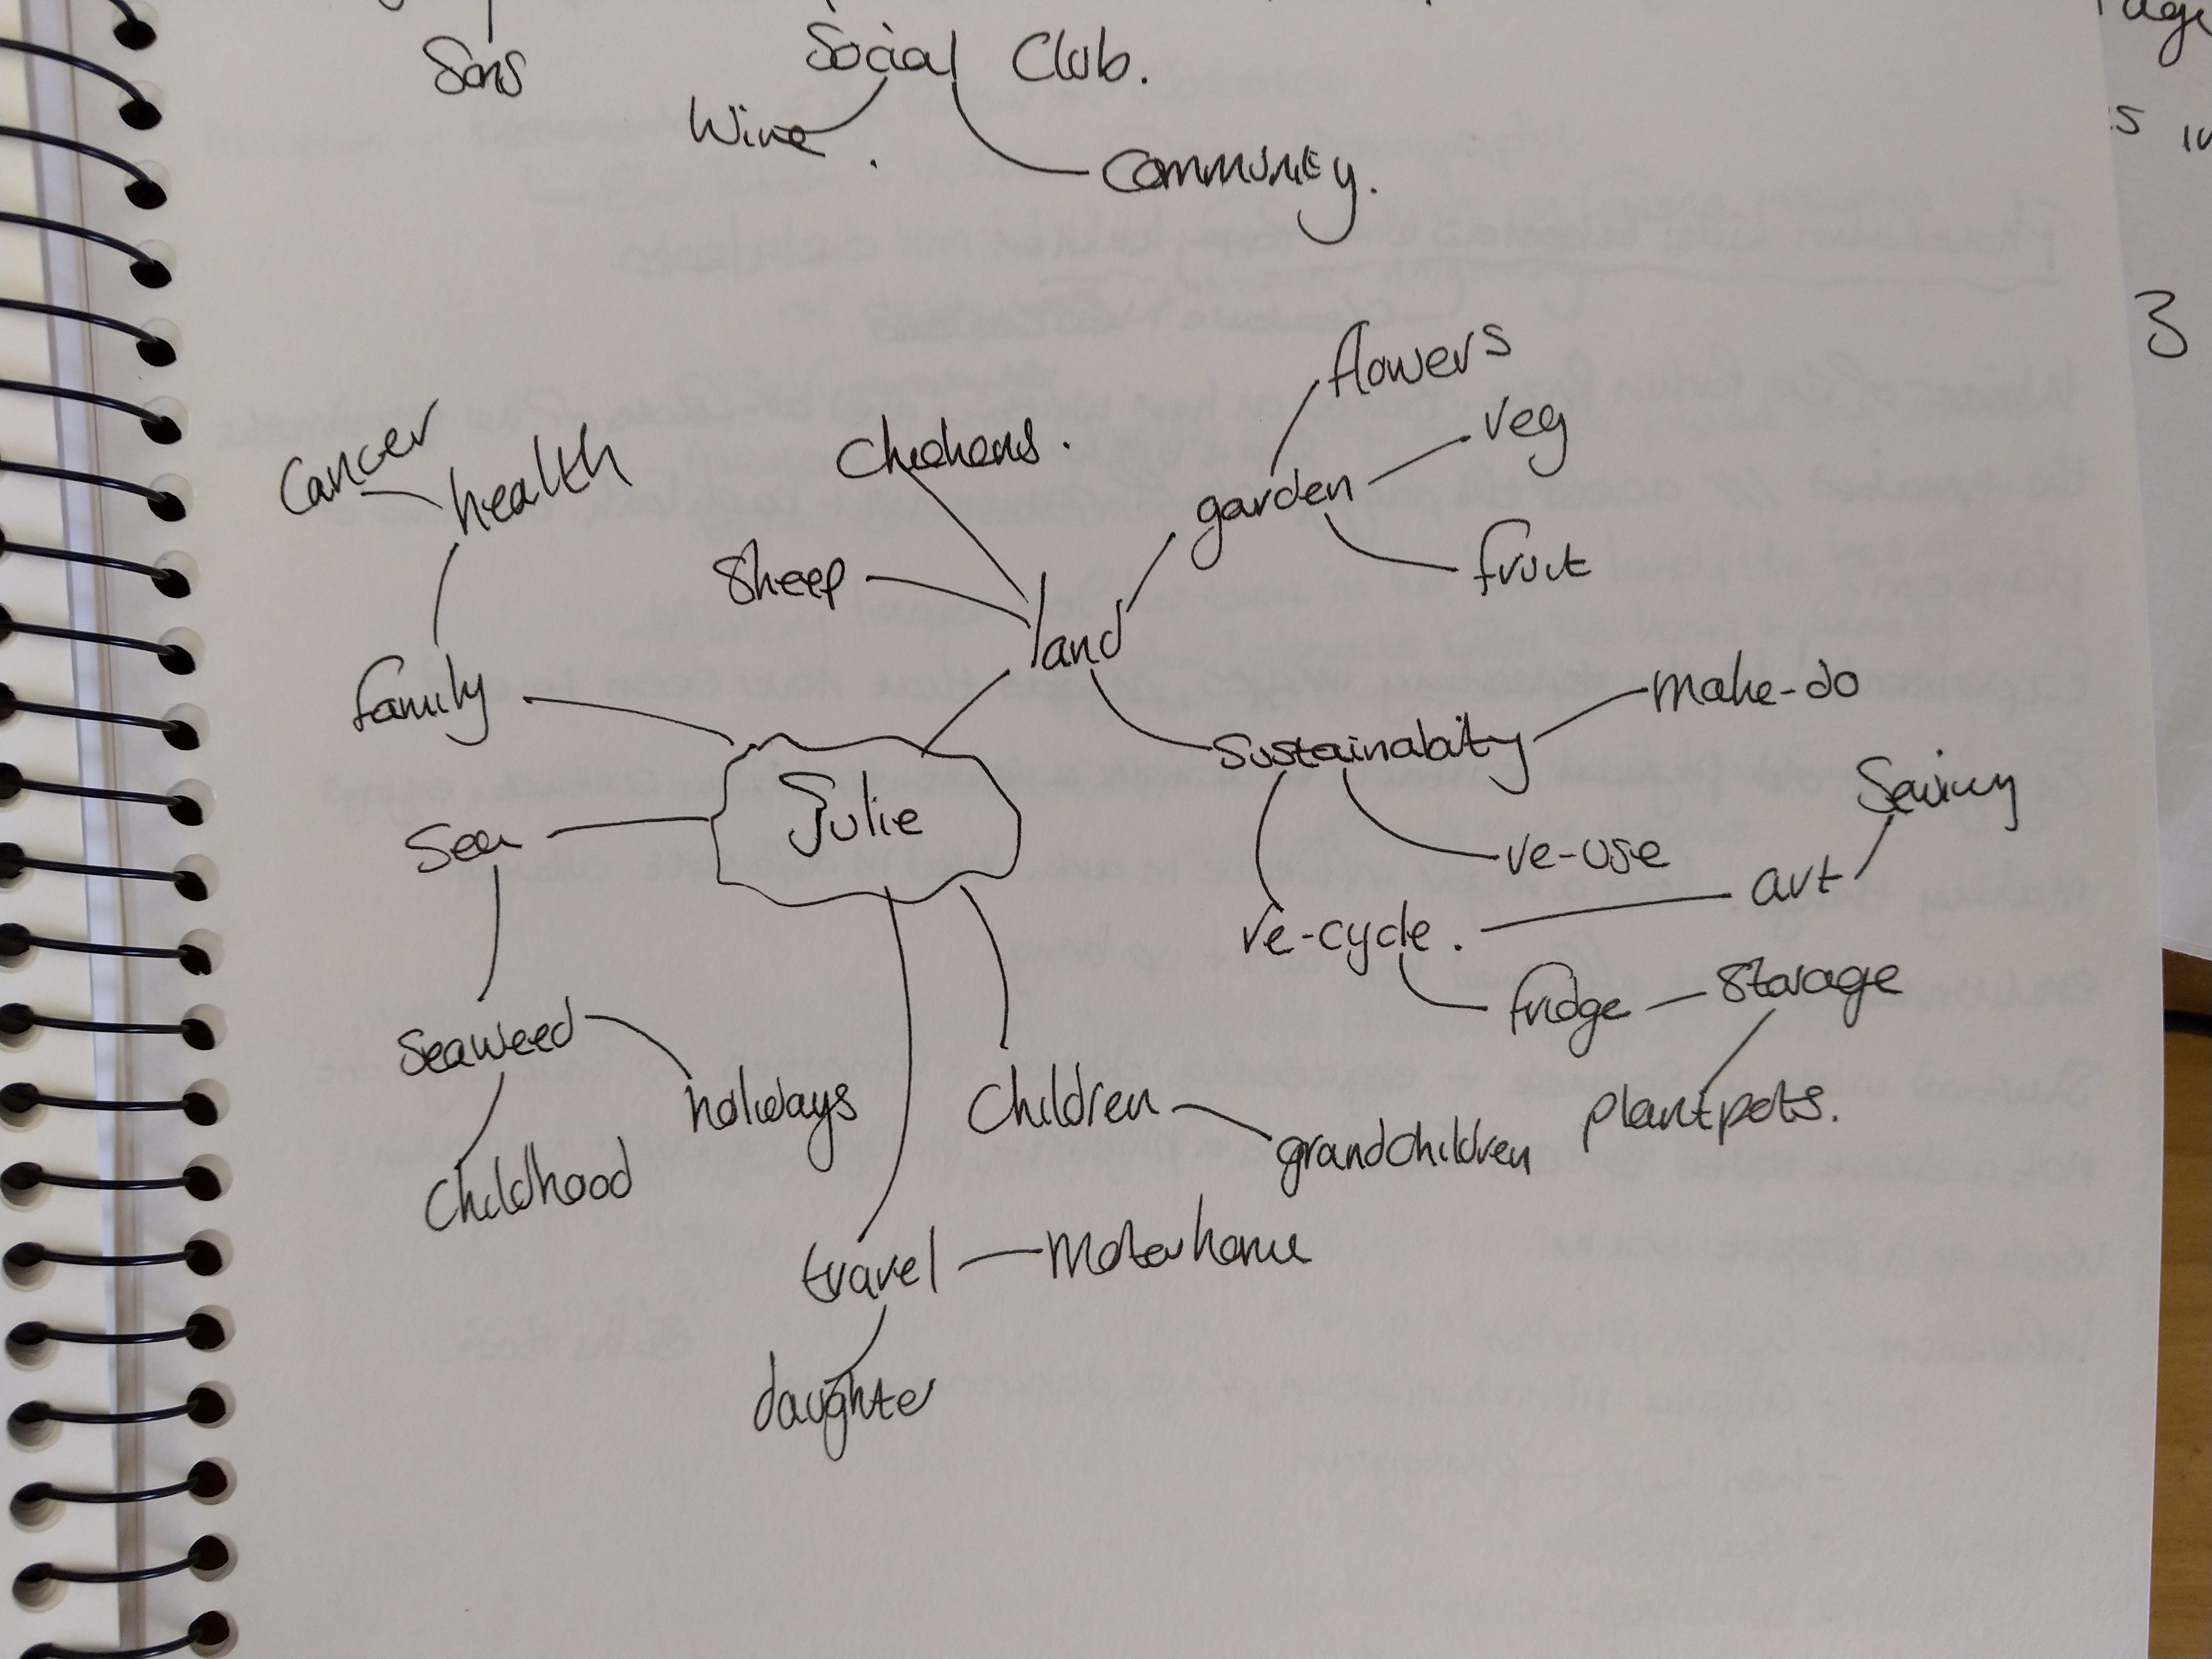 Sons
Social Club.
Wine
Community.
3
flowers
veg
Chickens.
garden
Cancer
health
fruit
Sheep
land
family
make-do
Sustainabity
Julie
Sewing
Sea
re-use
art
re-cycle.
fridge
Storage
Seaweed
holidays
Children
plantpots.
grandchildren
Childhood
travel
Motorhome
daughter